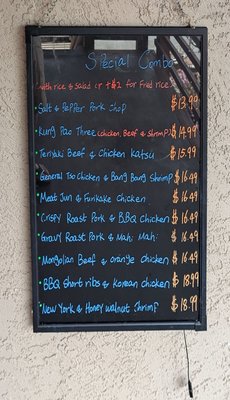 Special Combo
(with rice & salad or +$2 for Fried rice)
Salt & Pepper Pork Chop $13.99
Kung Pao Three (chicken, Beef & shrimp) $14.99
Teriyaki Beef & Chicken Katsu $15.99
General Tso Chicken & Bang Bang Shrimp $16.49
Meat Jun & Furikake Chicken $16.49
Crispy Roast Pork & BBQ Chicken $16.49
Gravy Roast Pork & Mahi Mahi $16.49
Mongolian Beef & orange chicken $16.49
BBQ Short ribs & korean chicken $18.99
New York & Honey walnut shrimp $18.99